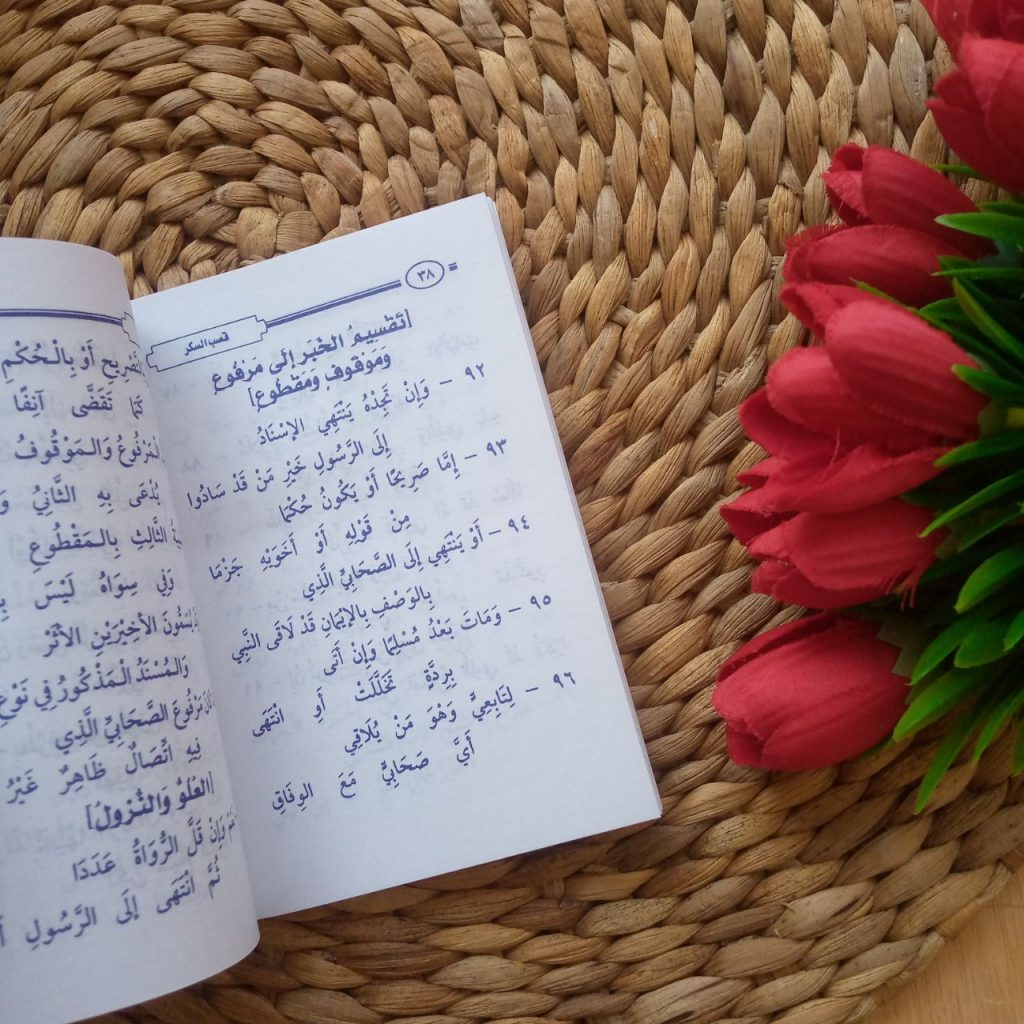 ٣٨
قصب السكر
[تَقْسِيمُ الخَبَرِ إِلَى مَرْفُوعٍ
وَمَوْقُوفٍ وَمَقْطُوعٍ]
٩٢ - وَإِنْ تَجِدْهُ يَنْتَهِي الإِسْنَادُ
إِلَى الرَّسُولِ خَيْرِ مَنْ قَدْ سَادُوا
٩٣ - إِمَّا صَرِيحًا أَوْ يَكُونُ حُكْمَا
مِنْ قَوْلِهِ أَوْ أَخَوَيْهِ جَزْمَا
٩٤ - أَوْ يَنْتَهِي إِلَى الصَّحَابِيِّ الَّذِي
بِالوَصْفِ بِالإِيْمَانِ قَدْ لَاقَى النَّبِي
٩٥ - وَمَاتَ بَعْدُ مُسْلِمًا وَإِنْ أَتَى
بِرِدَّةٍ تَخَلَّلَتْ أَوِ انْتَهَى
٩٦ - لِتَابِعِيٍّ وَهْوَ مَنْ يُلَاقِي
أَيَّ صَحَابِيٍّ مَعَ الوِفَاقِ
أَوْ بِالْحُكْمِ
تَقَضَّى آنِفًا
المَرْفُوعُ وَالمَوْقُوفُ
يُدْعَى بِهِ الثَّانِيُ
الثَّالِثِ بِالمَقْطُوعِ
وَفِي سِوَاهُ لَيْسَ
الأَخِيرَيْنِ الأَثَرْ
وَالمُسْنَدُ الْمَذْكُورُ فِي نَوْعِ
مَرْفُوعَ الصَّحَابِيِّ الَّذِي
فِيهِ اتِّصَالٌ ظَاهِرٌ غَيْرُ
[العُلُوُّ وَالنُّزُولُ]
وَإِنْ قَلَّ الرُّوَاةُ عَدَدَا
ثُمَّ انْتَهَى إِلَى الرَّسُولِ